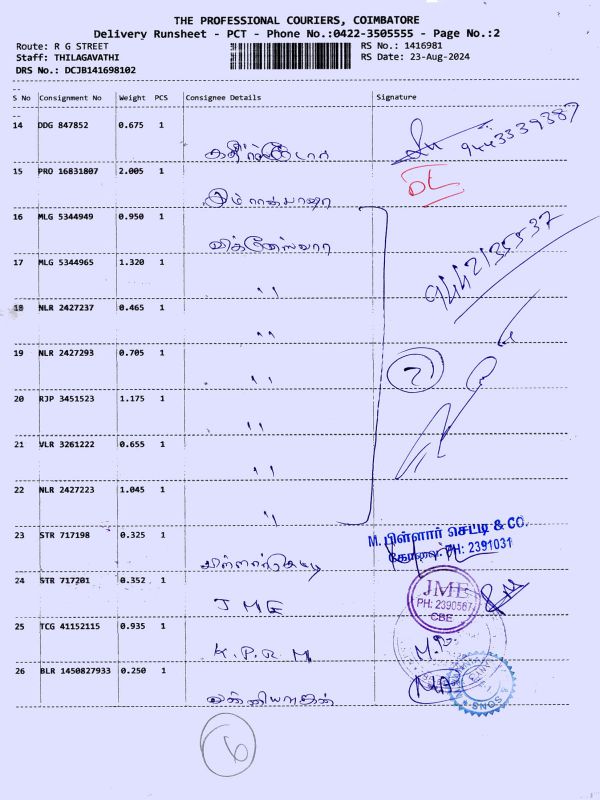 THE PROFESSIONAL COURIERS, COIMBATORE
Delivery Runsheet - PCT - Phone No.:0422-3505555 - Page No.:2
Route: R G STREET
RS No.: 1416981
Staff: THILAGAVATHI
RS Date: 23-Aug-2024
DRS No.: DCJB141698102
S No Consignment No Weight PCS Consignee Details Signature
14 DDG 847852 0.675 1
9443339387
15 PRO 16831807 2.005 1
DL
16 MLG 5344949 0.950 1
விக்னேஸ்வரா
9442135537
17 MLG 5344965 1.320 1
"
18 NLR 2427237 0.465 1
"
19 NLR 2427293 0.705 1
"
20 RJP 3451523 1.175 1
"
21 VLR 3261222 0.655 1
"
22 NLR 2427223 1.045 1
"
23 STR 717198 0.325 1
M. பிள்ளார் செட்டி & CO.
கோவை. PH: 2391031
24 STR 717201 0.352 1
JME
JME
PH: 2390567
CBE
25 TCG 41152115 0.935 1
K.P.R.M
26 BLR 1450827933 0.250 1
SONS
6